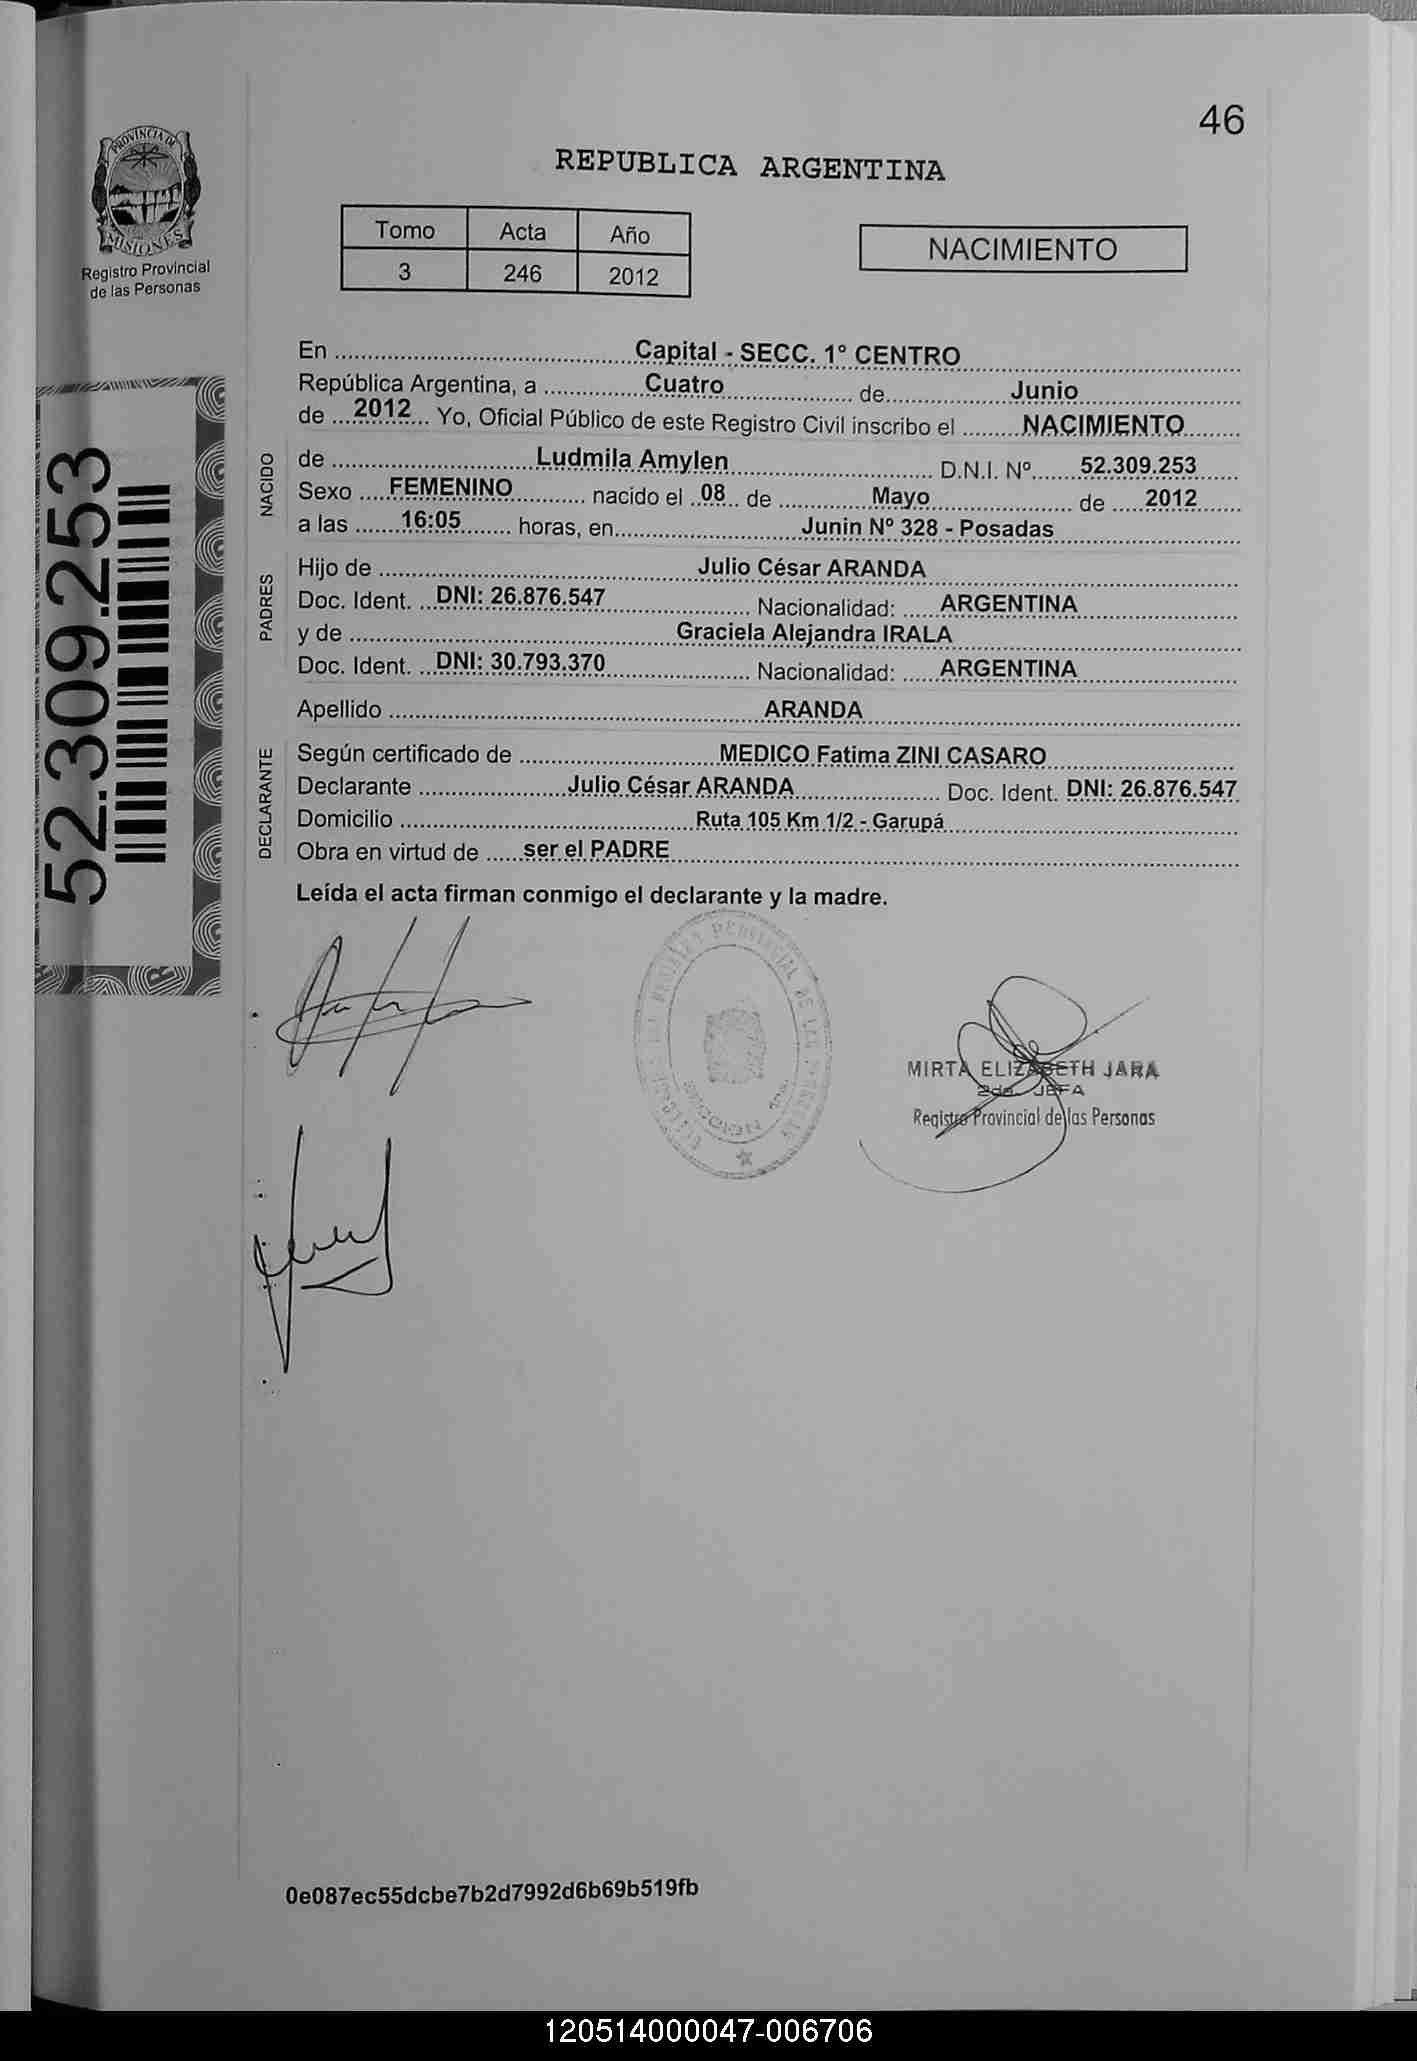 46
PROVINCIA DE
MISIONES
Registro Provincial
de las Personas
REPUBLICA ARGENTINA
Tomo Acta Año
3 246 2012
NACIMIENTO
En ........ Capital - SECC. 1° CENTRO
República Argentina, a ........ Cuatro ........ de ........ Junio
de .... 2012 ... Yo, Oficial Público de este Registro Civil inscribo el ........ NACIMIENTO ........
NACIDO
de ........ Ludmila Amylen ........ D.N.I. Nº ........ 52.309.253
Sexo .... FEMENINO ........ nacido el .. 08 .. de ........ Mayo ........ de ..... 2012
a las ...... 16:05 ....... horas, en ........ Junin Nº 328 - Posadas
PADRES
Hijo de ........ Julio César ARANDA
Doc. Ident. .. DNI: 26.876.547 ........ Nacionalidad: ..... ARGENTINA
y de ........ Graciela Alejandra IRALA
Doc. Ident. .. DNI: 30.793.370 ........ Nacionalidad: ..... ARGENTINA
Apellido ........ ARANDA
DECLARANTE
Según certificado de ........ MEDICO Fatima ZINI CASARO
Declarante ........ Julio César ARANDA ........ Doc. Ident. DNI: 26.876.547
Domicilio ........ Ruta 105 Km 1/2 - Garupá
Obra en virtud de ..... ser el PADRE
Leída el acta firman conmigo el declarante y la madre.
52.309.253
MIRTA ELIZABETH JARA
2da. JEFA
Registro Provincial de las Personas
0e087ec55dcbe7b2d7992d6b69b519fb
120514000047-006706